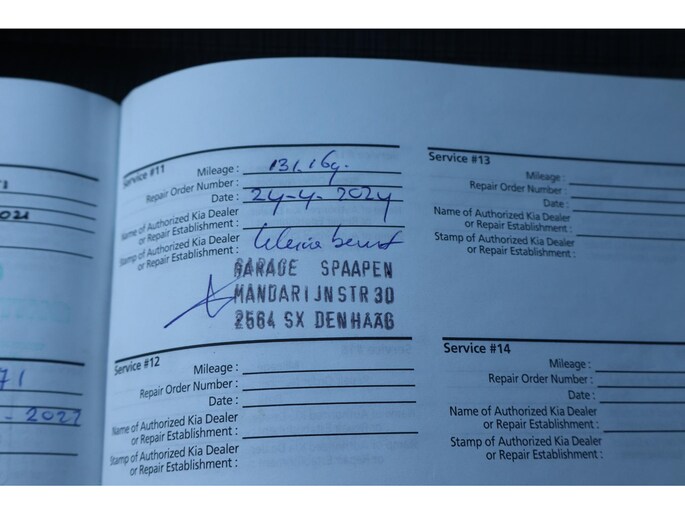 Service #11
Mileage : 131.169.
Repair Order Number :
Date : 24-4-2024
Name of Authorized Kia Dealer
or Repair Establishment :
Stamp of Authorized Kia Dealer
or Repair Establishment : kleine beurt
GARAGE SPAAPEN
MANDARIJNSTR 30
2564 SX DEN HAAG
Service #12
Mileage :
Repair Order Number :
Date :
Name of Authorized Kia Dealer
or Repair Establishment :
Stamp of Authorized Kia Dealer
or Repair Establishment :
Service #13
Mileage :
Repair Order Number :
Date :
Name of Authorized Kia Dealer
or Repair Establishment :
Stamp of Authorized Kia Dealer
or Repair Establishment :
Service #14
Mileage :
Repair Order Number :
Date :
Name of Authorized Kia Dealer
or Repair Establishment :
Stamp of Authorized Kia Dealer
or Repair Establishment :